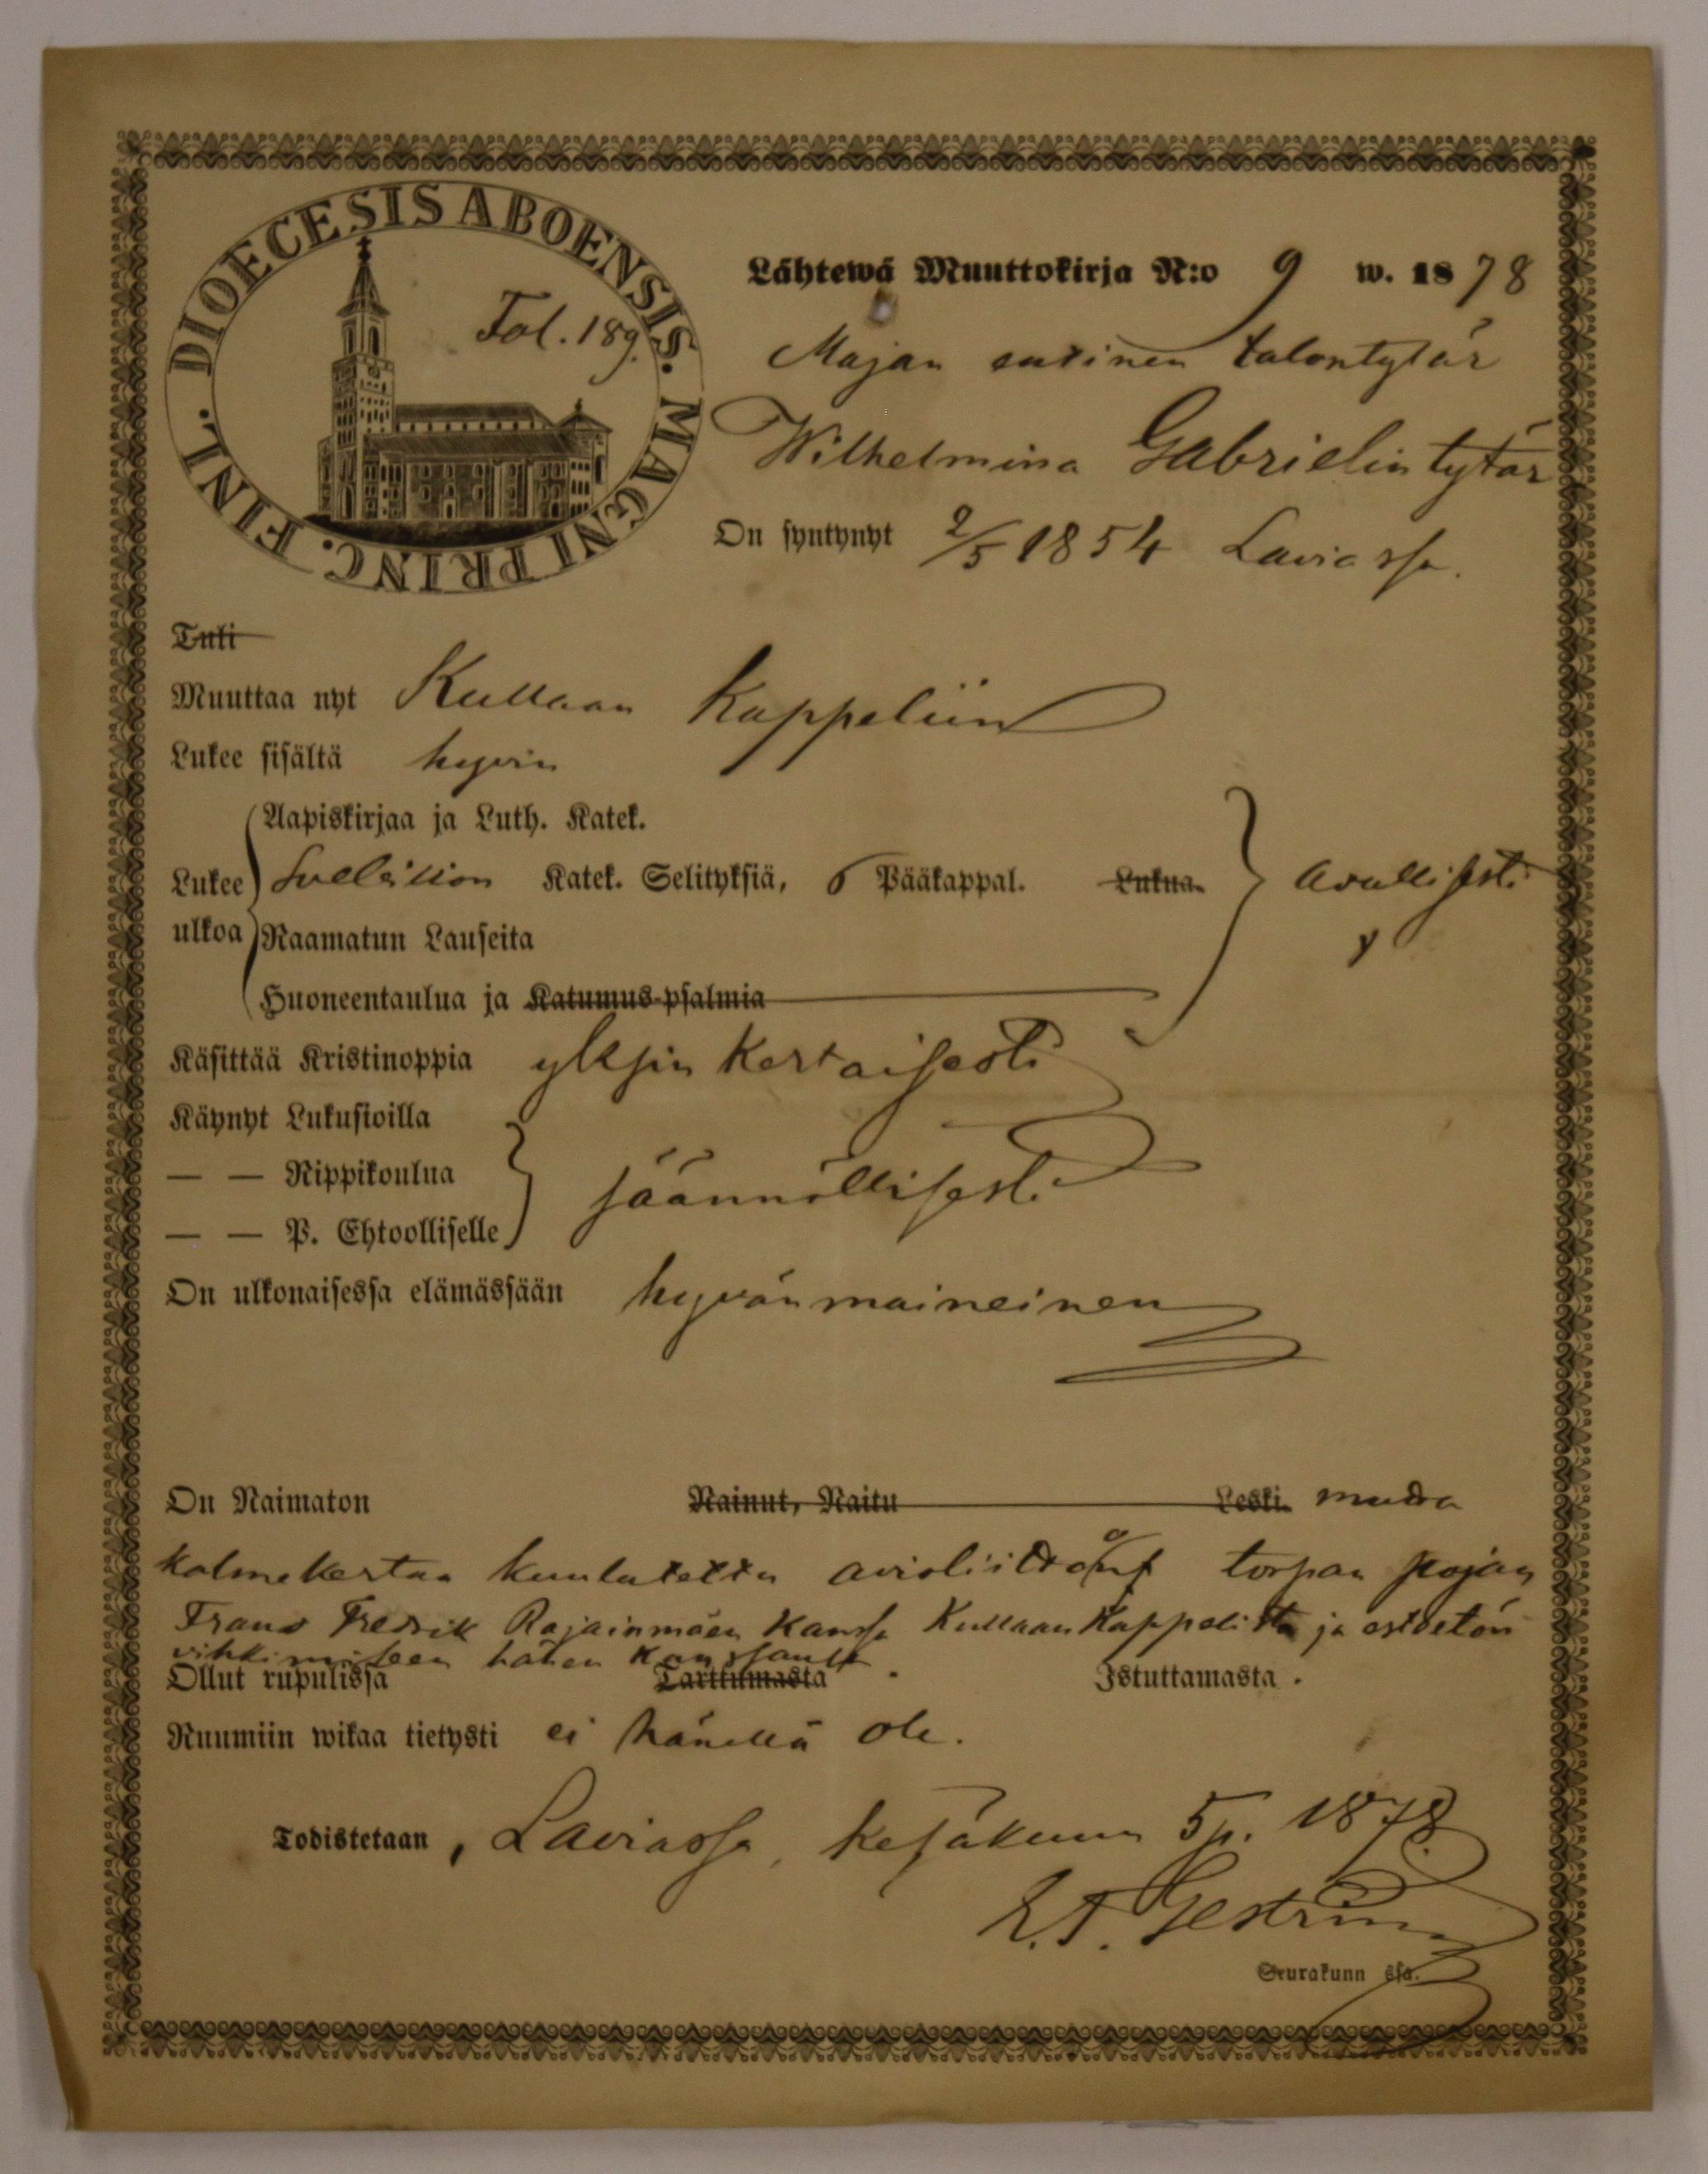 DIOECESIS ABOENSIS. MAGNI PRINC. FINL.
Fol. 189.
Lähtewä Muuttokirja N:o 9 w. 1878
Majan entinen talontytär
Wilhelmina Gabrielin tytär
On syntynyt 2/5 1854 Laviassa.
Tuli
Muuttaa nyt Kullaan Kappeliin
Lukee sisältä hyvin
Aapiskirjaa ja Luth. Katek.
Lukee Svebiliion Katek. Selityksiä, 6 Pääkappal. Lukua. avullisesti
ulkoa Raamatun Lauseita
Huoneentaulua ja Katumus-psalmia
Käsittää Kristinoppia yksinkertaisesti
Käynyt Lukusioilla
— — Rippikoulua säännöllisesti
— — P. Ehtoolliselle
On ulkonaisessa elämässään hyvänmaineinen
On Naimaton Nainut, Naitu Leski. mutta
kolmekertaa kuulutettu avioliittoon torpan pojan
Frans Fredrik Rajainmäen kanssa Kullaan Kappelista ja esteetön
vihkimiseen hänen kanssansa.
Ollut rupulissa Tarttumasta Istuttamasta.
Ruumiin wikaa tietysti ei hänellä ole.
Todistetaan, Laviassa, kesäkuun 5 p. 1878.
Gestrin
Seurakunn ssa.